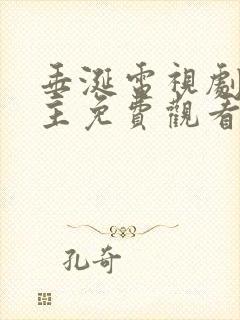 垂涎電視劇
主免費觀看
孔奇